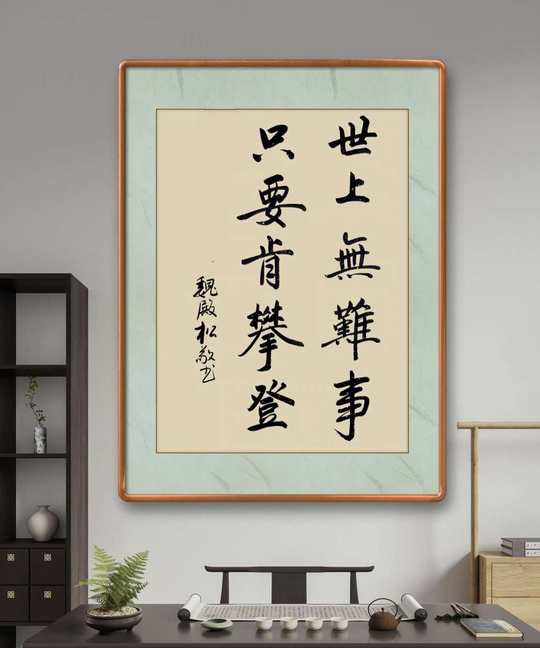 世上無難事
只要肯攀登
魏殿松敬书